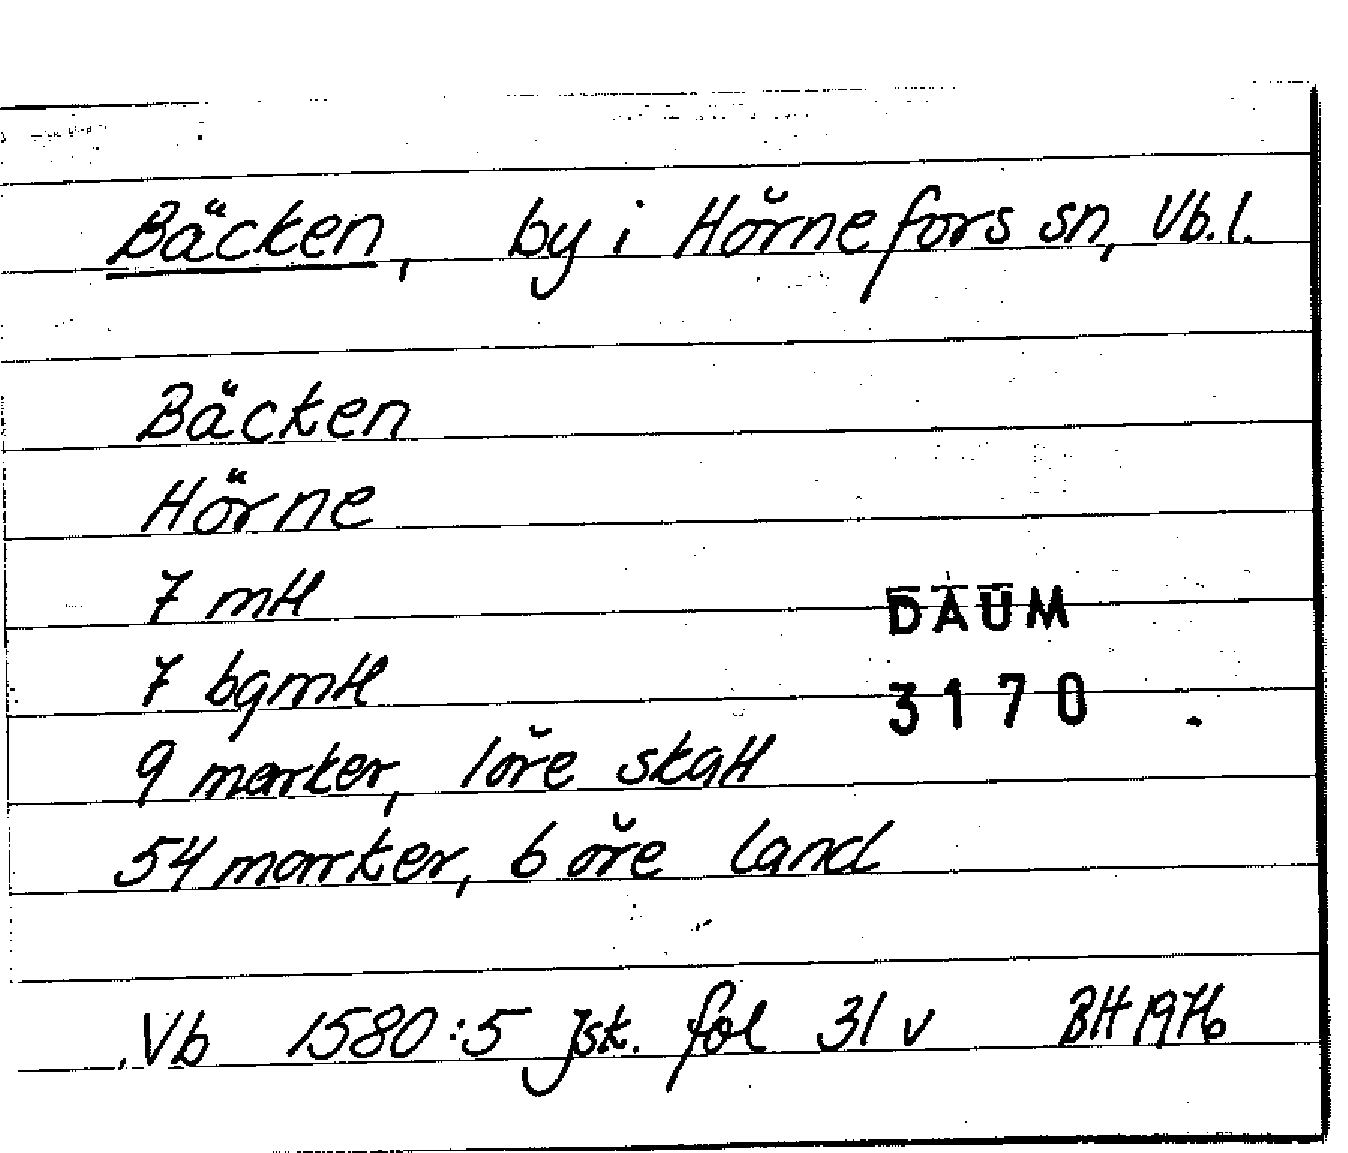 Bäcken, by i Hörnefors sn, Vb.l.
Bäcken
Hörne
7 mtl
7 bgmtl
DAUM
3170
9 marker, 1 öre skatt
54 marker, 6 öre land
Vb 1580:5 Jsk. fol 31 v BH 1976